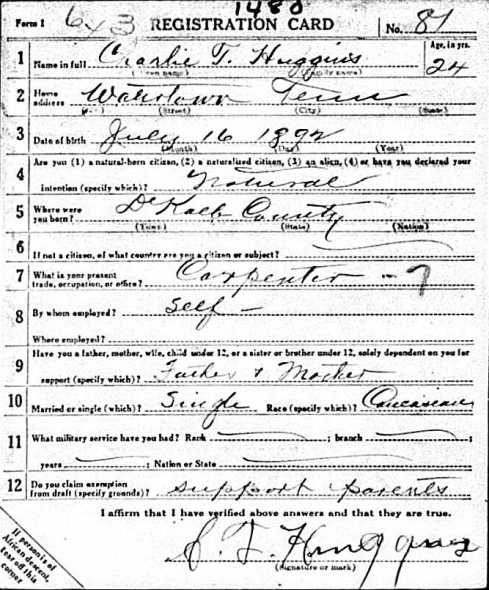 1480
Form 1 643 REGISTRATION CARD No. 81
1 Name in full Charlie T. Huggins Age, in yrs. 24
(Given name) (Family name)
2 Home address Watertown Tenn
(No.) (Street) (City) (State)
3 Date of birth July 16 1892
(Month) (Day) (Year)
4 Are you (1) a natural-born citizen, (2) a naturalized citizen, (3) an alien, (4) or have you declared your
intention (specify which)? Natural
5 Where were you born? DeKalb County
(Town) (State) (Nation)
6 If not a citizen, of what country are you a citizen or subject?
7 What is your present trade, occupation, or office? Carpenter - 7
8 By whom employed? Self —
Where employed?
9 Have you a father, mother, wife, child under 12, or a sister or brother under 12, solely dependent on you for
support (specify which)? Father & Mother
10 Married or single (which)? Single Race (specify which)? Caucasian
11 What military service have you had? Rank ; branch ;
years ; Nation or State
12 Do you claim exemption from draft (specify grounds)? support parents
I affirm that I have verified above answers and that they are true.
C. T. Huggins
(Signature or mark)
If person is of
African descent,
tear off this
corner